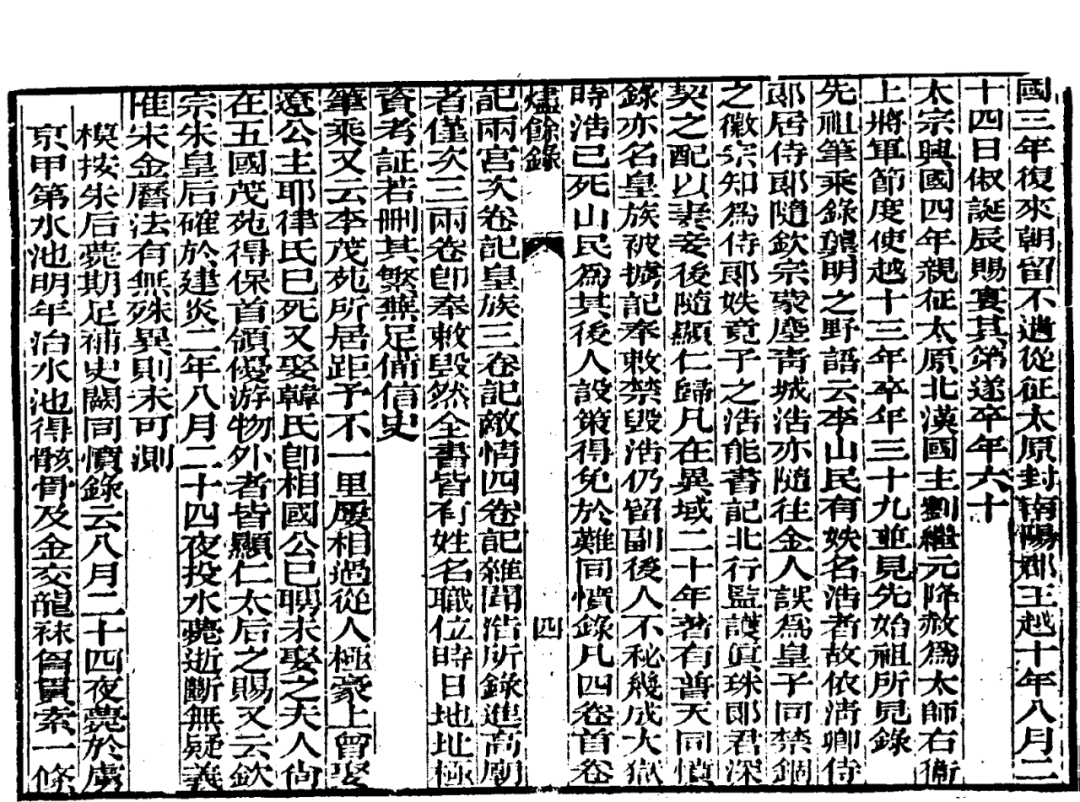 國三年復來朝留不遣從征太原封南陽郡王越十年八月二
十四日俶誕辰賜宴其第遂卒年六十
太宗興國四年親征太原北漢國主劉繼元降赦爲太師右衛
上將軍節度使越十三年卒年三十九並見先始祖所見錄
先祖筆乘錄瓊明之野語云李山民有姎名浩者故依淸卿侍
郎居侍郎隨欽宗蒙塵靑城浩亦隨往金人誤爲皇子同禁錮
之徽宗知爲侍郎姎竟子之浩能書記北行監護眞珠郎君深
契之配以妻妾後隨顯仁歸凡在異域二十年著有普天同憤
錄亦名皇族被擄記奉敕禁毀浩仍留副後人不秘幾成大獄
時浩已死山民爲其後人設策得免於難同憤錄凡四卷首卷
燼餘錄 四
記兩宮次卷記皇族三卷記敵情四卷記雜聞浩所錄進高廟
者僅次三兩卷卽奉敕毀然全書皆有姓名職位時日地址極
資考証若刪其繁蕪足備信史
筆乘又云李茂苑所居距予不一里屢相過從人極豪上曾娶
遼公主耶律氏已死又娶韓氏卽相國公已聘未娶之夫人尙
在五國茂苑得保首領優游物外者皆顯仁太后之賜又云欽
宗朱皇后確於建炎二年八月二十四夜投水薨逝斷無疑義
惟宋金曆法有無殊異則未可測
模按朱后薨期足補史闕同憤錄云八月二十四夜薨於虜
京甲第水池明年治水池得骸骨及金交龍袜僞貫索一條